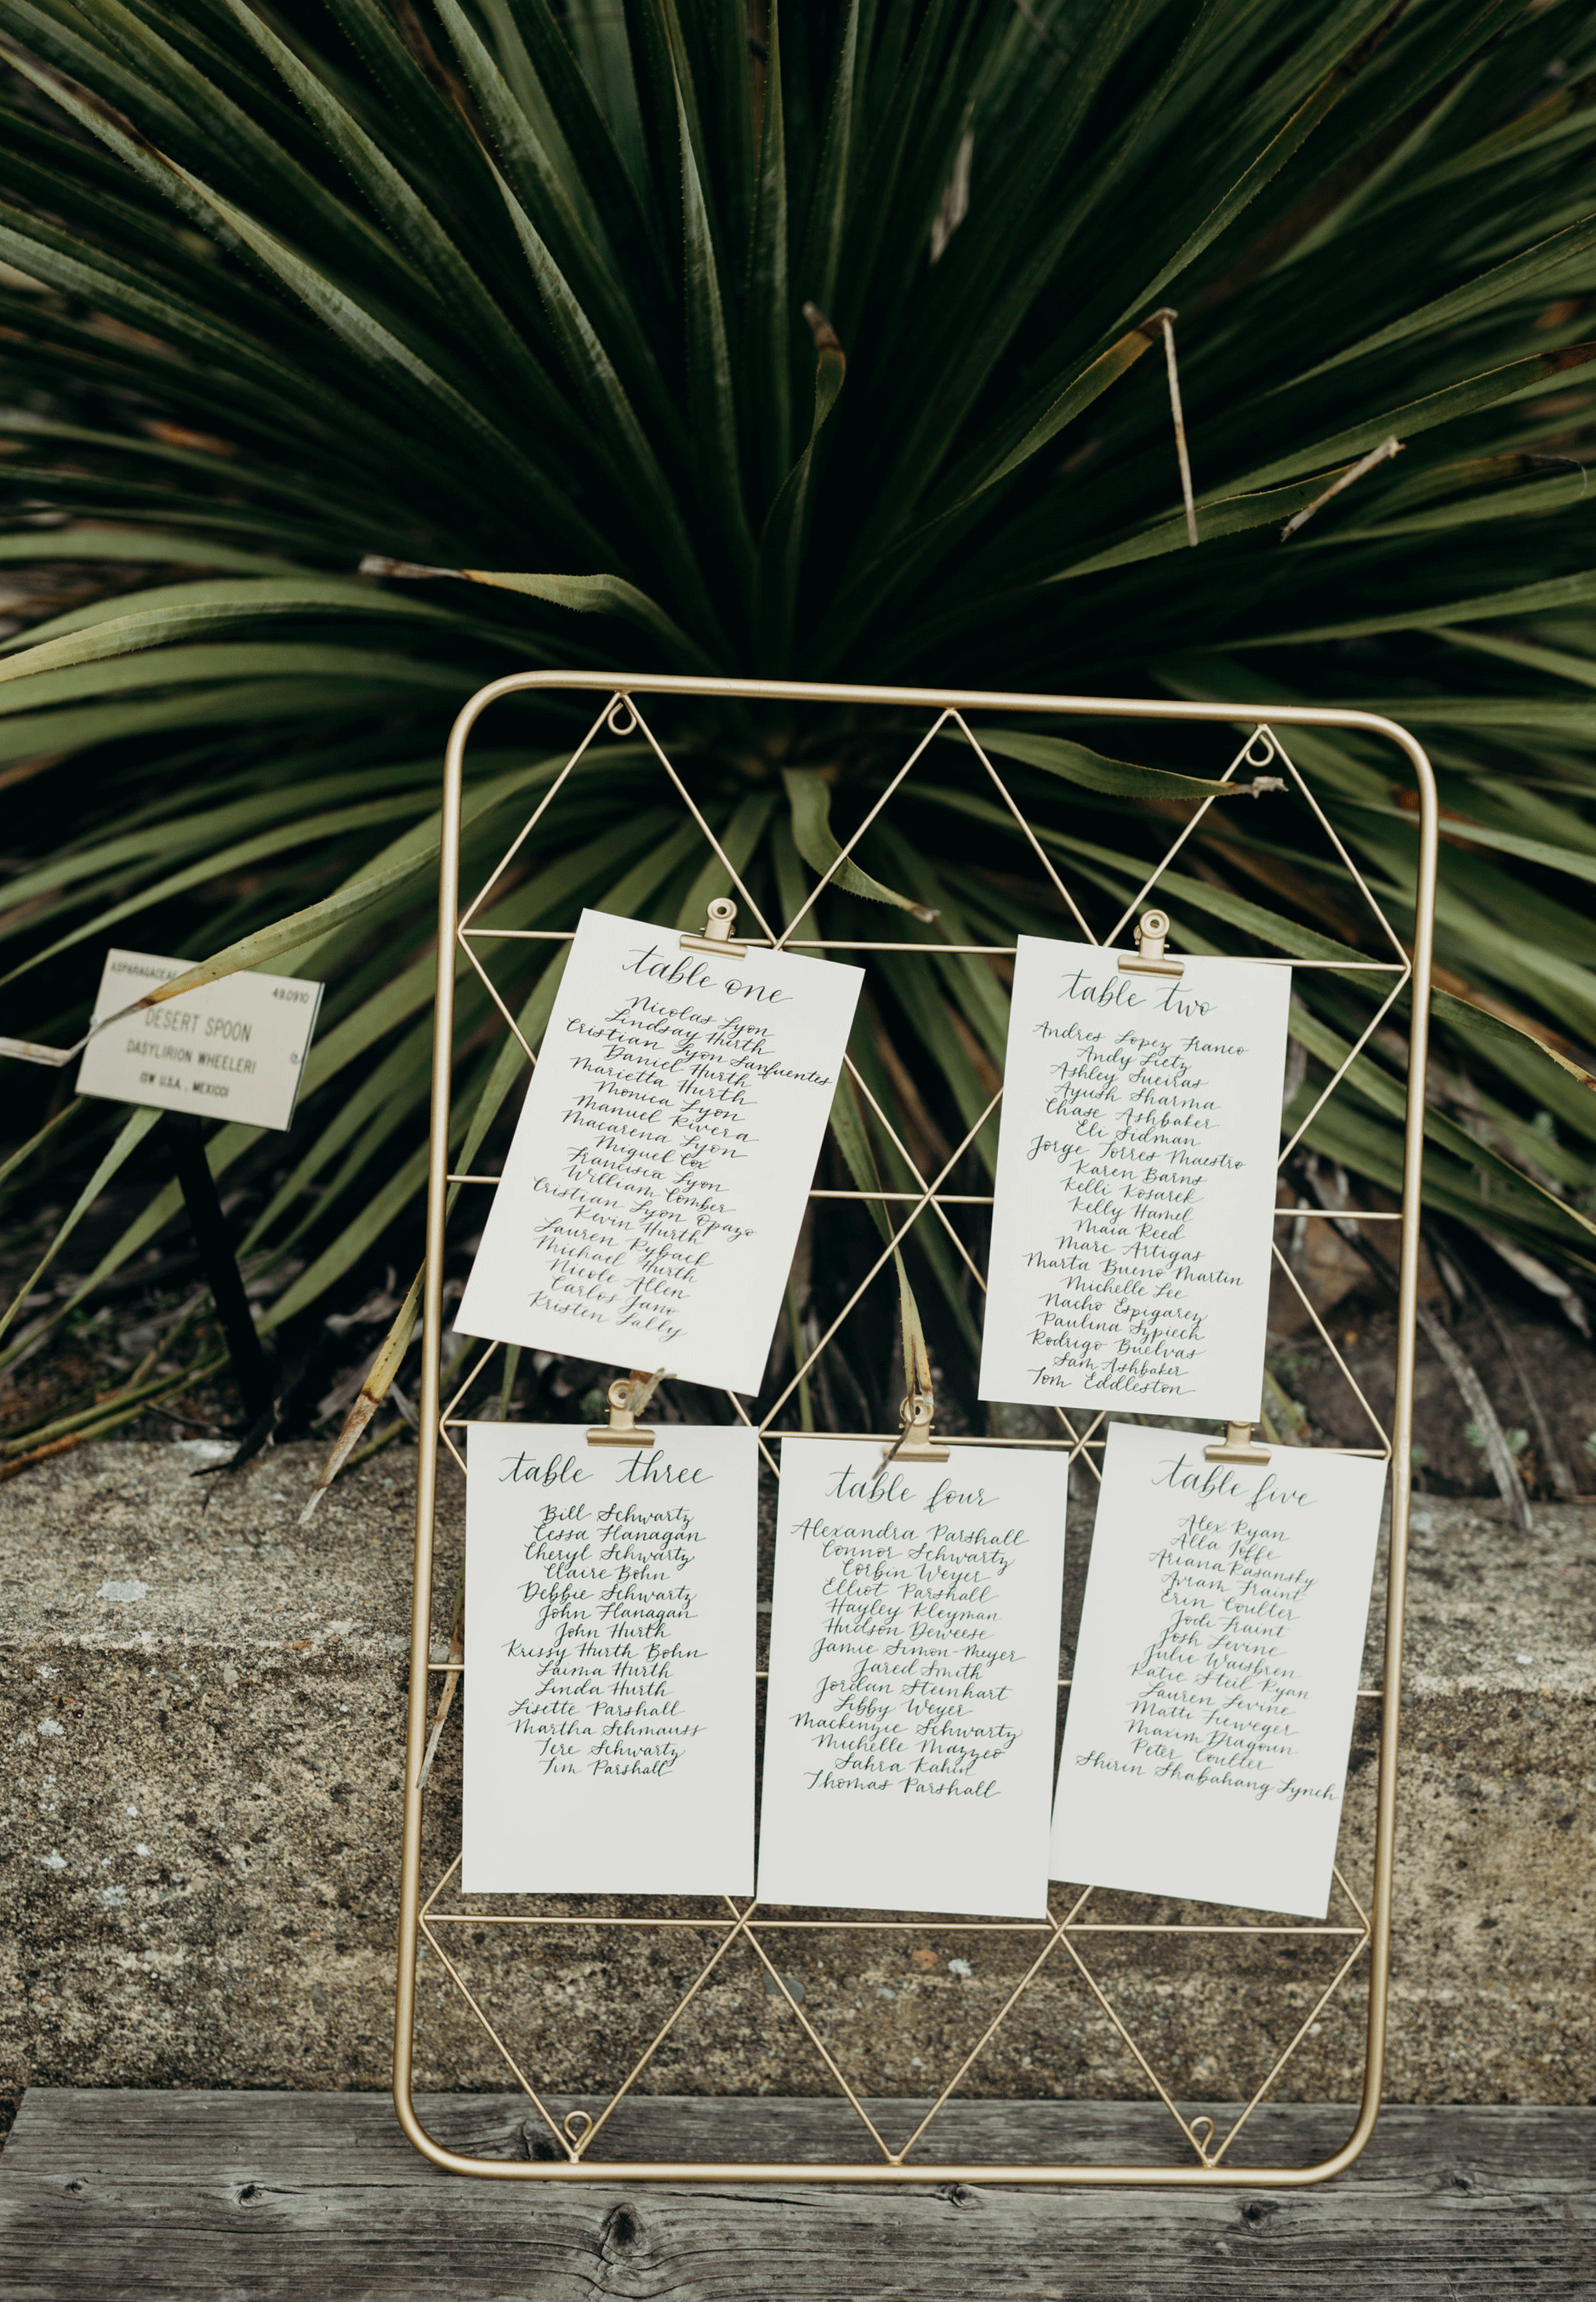 ASPARAGACEAE
49.0910
DESERT SPOON
DASYLIRION WHEELERI
(SW U.S.A., MEXICO)
table one
Nicolas Lyon
Lindsay Hurth
Cristian Lyon Sanfuentes
Daniel Hurth
Marietta Hurth
Monica Lyon
Manuel Rivera
Macarena Lyon
Miguel Cox
Francisca Lyon
William Comber
Cristian Lyon Opazo
Kevin Hurth
Lauren Ryback
Michael Hurth
Nicole Allen
Carlos Jano
Kristen Lally
table two
Andres Lopez Franco
Andy Lietz
Ashley Sueiras
Ayush Sharma
Chase Ashbaker
Eli Sidman
Jorge Torres Maestro
Karen Barns
Kelli Kosarek
Kelly Hamel
Maia Reed
Marc Artigas
Marta Bueno Martin
Michelle Lee
Nacho Espigarez
Paulina Szpiech
Rodrigo Buelvas
Sam Ashbaker
Tom Eddleston
table three
Bill Schwartz
Cessa Flanagan
Cheryl Schwartz
Claire Bohn
Debbie Schwartz
John Flanagan
John Hurth
Krissy Hurth Bohn
Laima Hurth
Linda Hurth
Lisette Parshall
Martha Schmauss
Tere Schwartz
Tim Parshall
table four
Alexandra Parshall
Connor Schwartz
Corbin Weyer
Elliot Parshall
Hayley Kleyman
Hudson Deweese
Jamie Simon-Meyer
Jared Smith
Jordan Steinhart
Libby Weyer
Mackenzie Schwartz
Michelle Mazzeo
Sahra Kahin
Thomas Parshall
table five
Alex Ryan
Alla Ioffe
Ariana Rasansky
Avram Fraint
Erin Coulter
Jodi Fraint
Josh Levine
Julie Waisbren
Katie Steil Ryan
Lauren Levine
Matti Fieweger
Maxim Dragoun
Peter Coulter
Shirin Shabahang Lynch